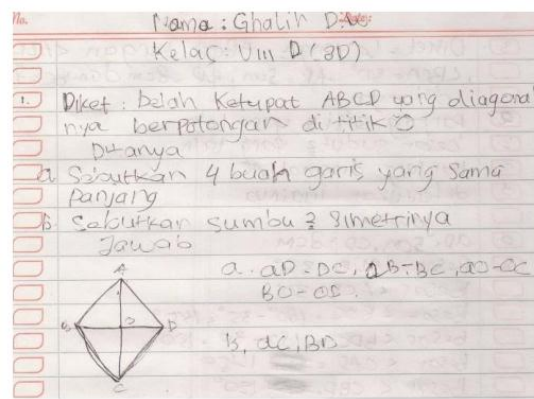 No.
Nama : Ghalih D.
Kelas : VIII D (8D)
1. Diket : belah Ketupat ABCD yang diagonal
nya berpotongan di titik O
Ditanya
a. Sebutkan 4 buah garis yang Sama
Panjang
b. Sebutkan Sumbu 2 Simetrinya
Jawab
a. aD=DC, AB=BC, aO=OC
BO=OD.
b, aC, BD
A
B
O
D
C